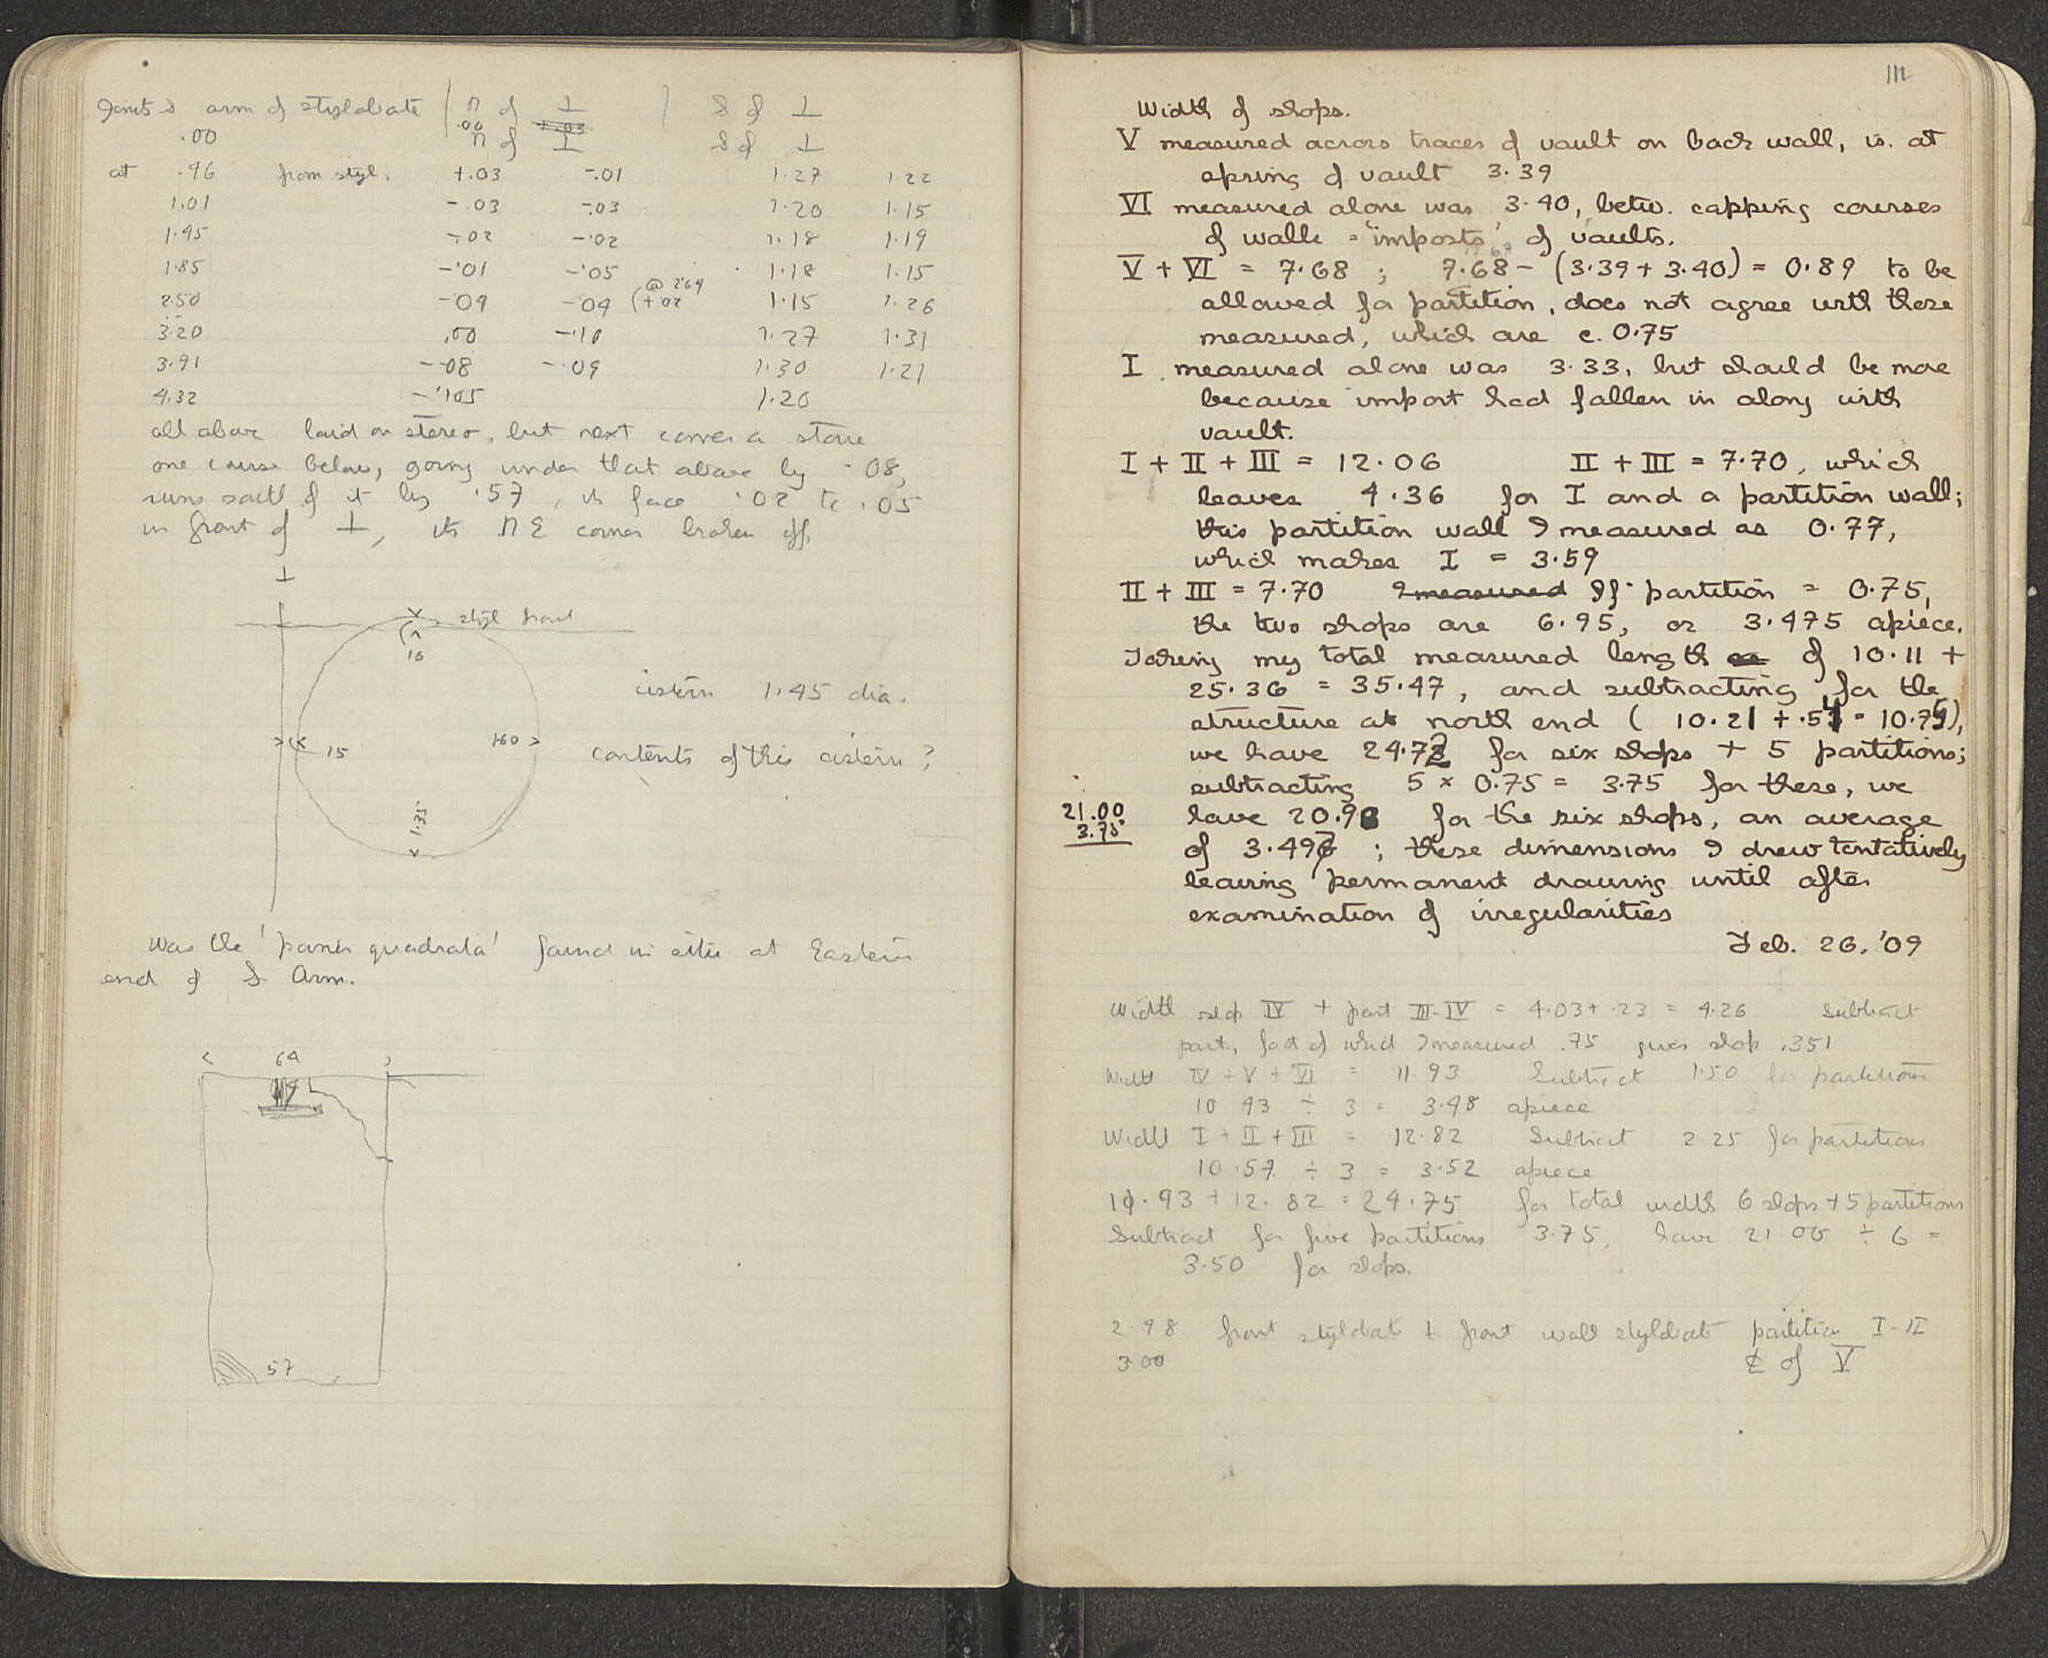 Joints S arm of stylobate n of ⊥ S of ⊥
.00 .00 n of ⊥ S of ⊥
at .46 from styl. +.03 -.01 1.27 1.22
1.01 -.03 -.03 1.20 1.15
1.45 -.02 -.02 1.18 1.19
1.85 -.01 -.05 1.18 1.15
@ 2.64
2.50 -04 -04 (+02 1.15 1.26
3.20 .00 -.10 1.27 1.31
3.91 -.08 -.09 1.30 1.21
4.32 -.105 1.20
all above laid on stereo, but next comes a stone
one course below, going under that above by .08,
runs south of it by .57, its face .02 to .05
in front of ⊥, its NE corner broken off.
⊥
styl front
16
cistern 1.45 dia.
15 160
contents of this cistern?
1.35
Was the 'panis quadrata' found in situ at Eastern
end of S Arm.
64
57
111
Width of shops.
V measured across traces of vault on back wall, is at
spring of vault 3.39
VI measured alone was 3.40, betw. capping courses
of walls = 'imposts' of vaults.
V + VI = 7.68 ; 7.68 - (3.39 + 3.40) = 0.89 to be
allowed for partition, does not agree with those
measured, which are c. 0.75
I measured alone was 3.33, but should be more
because impost had fallen in along with
vault.
I + II + III = 12.06 II + III = 7.70, which
leaves 4.36 for I and a partition wall;
this partition wall I measured as 0.77,
which makes I = 3.59
II + III = 7.70 I measured If partition = 0.75,
the two shops are 6.95, or 3.475 apiece.
Taking my total measured length of 10.11 +
25.36 = 35.47, and subtracting for the
structure at north end ( 10.21 + .54 = 10.75),
we have 24.72 for six shops + 5 partitions;
subtracting 5 × 0.75 = 3.75 for these, we
21.00
3.75
have 20.98 for the six shops, an average
of 3.497 ; these dimensions I drew tentatively
leaving permanent drawing until after
examination of irregularities
Feb. 26, '09
Width shop IV + part III-IV = 4.03 + .23 = 4.26 Subtract
part., foot of which I measured .75 gives shop .351
Width IV + V + VI = 11.93 Subtract 1.50 for partitions
10 43 ÷ 3 = 3.48 apiece
Width I + II + III = 12.82 Subtract 2.25 for partitions
10.57 ÷ 3 = 3.52 apiece
11.93 + 12.82 = 24.75 for total width 6 shops + 5 partitions
Subtract for five partitions 3.75, have 21 00 ÷ 6 =
3.50 for shops.
2.98 front stylobat ⊥ front wall stylobat partition I-II
3.00 ₵ of V